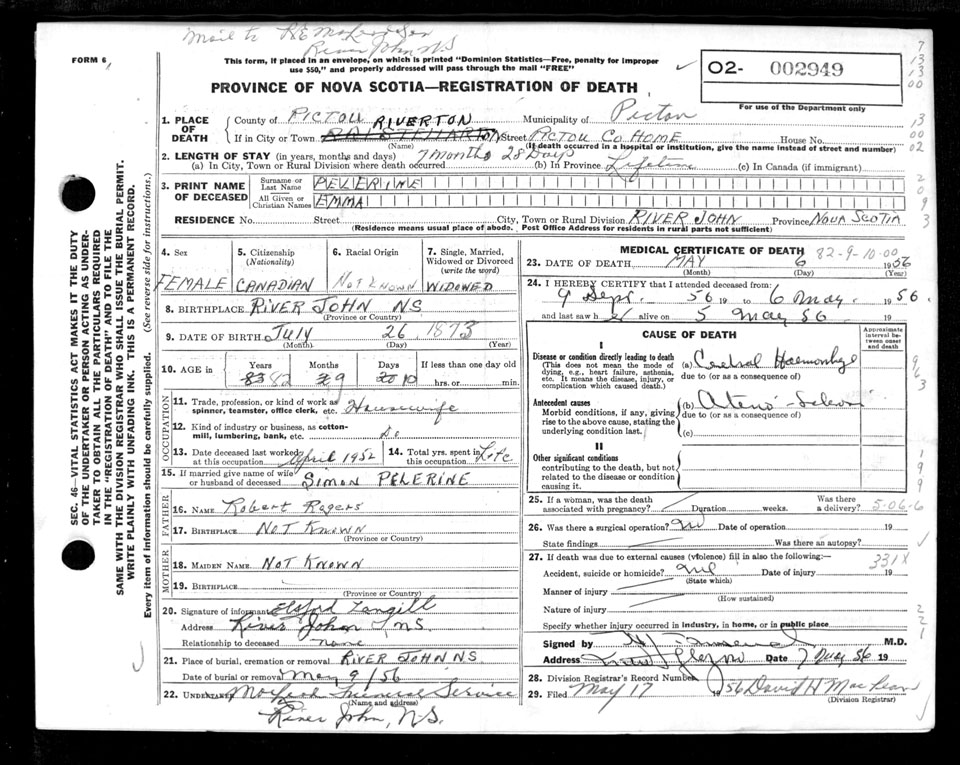 Mail to
River John NS
FORM 6
This form, if placed in an envelope, on which is printed "Dominion Statistics—Free, penalty for improper
use $50," and properly addressed will pass through the mail "FREE"
PROVINCE OF NOVA SCOTIA—REGISTRATION OF DEATH
O2- 002949
For use of the Department only
1. PLACE OF DEATH
County of PICTOU RIVERTON Municipality of Pictou
If in City or Town Street PICTOU CO HOME House No.
(Name) (If death occurred in a hospital or institution, give the name instead of street and number)
2. LENGTH OF STAY (in years, months and days) 7 months 28 Days
(a) In City, Town or Rural Division where death occurred (b) In Province Lifetime (c) In Canada (if immigrant)
3. PRINT NAME OF DECEASED
Surname or Last Name PELERINE
All Given or Christian Names EMMA
RESIDENCE No. Street City, Town or Rural Division RIVER JOHN Province NOVA SCOTIA
(Residence means usual place of abode. Post Office Address for residents in rural parts not sufficient)
4. Sex FEMALE
5. Citizenship (Nationality) CANADIAN
6. Racial Origin NOT KNOWN
7. Single, Married, Widowed or Divorced (write the word) WIDOWED
8. BIRTHPLACE RIVER JOHN NS.
(Province or Country)
9. DATE OF BIRTH July 26 1873
(Month) (Day) (Year)
10. AGE IN Years Months Days If less than one day
83 82 9 10 hrs. or min.
OCCUPATION
11. Trade, profession, or kind of work as spinner, teamster, office clerk, etc. Housewife
12. Kind of industry or business, as cotton-mill, lumbering, bank, etc. Do
13. Date deceased last worked at this occupation April 1952
14. Total yrs. spent in this occupation Life
15. If married give name of wife or husband of deceased SIMON PELERINE
FATHER
16. Name Robert Rogers
17. BIRTHPLACE NOT KNOWN
(Province or Country)
MOTHER
18. MAIDEN NAME NOT KNOWN
19. BIRTHPLACE
(Province or Country)
20. Signature of informant Langill
Address River John N.S.
Relationship to deceased none
21. Place of burial, cremation or removal RIVER JOHN NS
Date of burial or removal May 9/56
22. UNDERTAKER MacLeod Funeral Service
(Name and address)
River John, N.S.
MEDICAL CERTIFICATE OF DEATH 82-9-10-00
23. DATE OF DEATH MAY 6 1956
(Month) (Day) (Year)
24. I HEREBY CERTIFY that I attended deceased from:
9 Sept. 56 19 to 6 May. 1956.
and last saw h er alive on 5 May 56 19
CAUSE OF DEATH
Approximate interval between onset and death
I
Disease or condition directly leading to death
(This does not mean the mode of dying, e.g., heart failure, asthenia, etc. It means the disease, injury, or complication which caused death.)
(a) Cerebral Haemorrhage
due to (or as a consequence of)
Antecedent causes
Morbid conditions, if any, giving rise to the above cause, stating the underlying condition last.
(b) Arterio-Sclerosis
due to (or as a consequence of)
(c)
II
Other significant conditions
contributing to the death, but not related to the disease or condition causing it.
25. If a woman, was the death associated with pregnancy? Duration weeks. Was there a delivery? 5-06-6
26. Was there a surgical operation? Date of operation 19
State findings Was there an autopsy?
27. If death was due to external causes (violence) fill in also the following:— 331X
Accident, suicide or homicide? Date of injury 19
(State which)
Manner of injury
(How sustained)
Nature of injury
Specify whether injury occurred in industry, in home, or in public place
Signed by M.D.
Address New Glasgow Date 7 May 56 19
28. Division Registrar's Record Number
29. Filed May 17 1956 David H MacLean
(Division Registrar)
SEC. 46—VITAL STATISTICS ACT MAKES IT THE DUTY
OF THE UNDERTAKER OR PERSON ACTING AS UNDER-
TAKER TO OBTAIN ALL THE PARTICULARS REQUIRED
IN THE "REGISTRATION OF DEATH" AND TO FILE THE
SAME WITH THE DIVISION REGISTRAR WHO SHALL ISSUE THE BURIAL PERMIT.
WRITE PLAINLY WITH UNFADING INK. THIS IS A PERMANENT RECORD.
Every item of information should be carefully supplied. (See reverse side for instructions.)